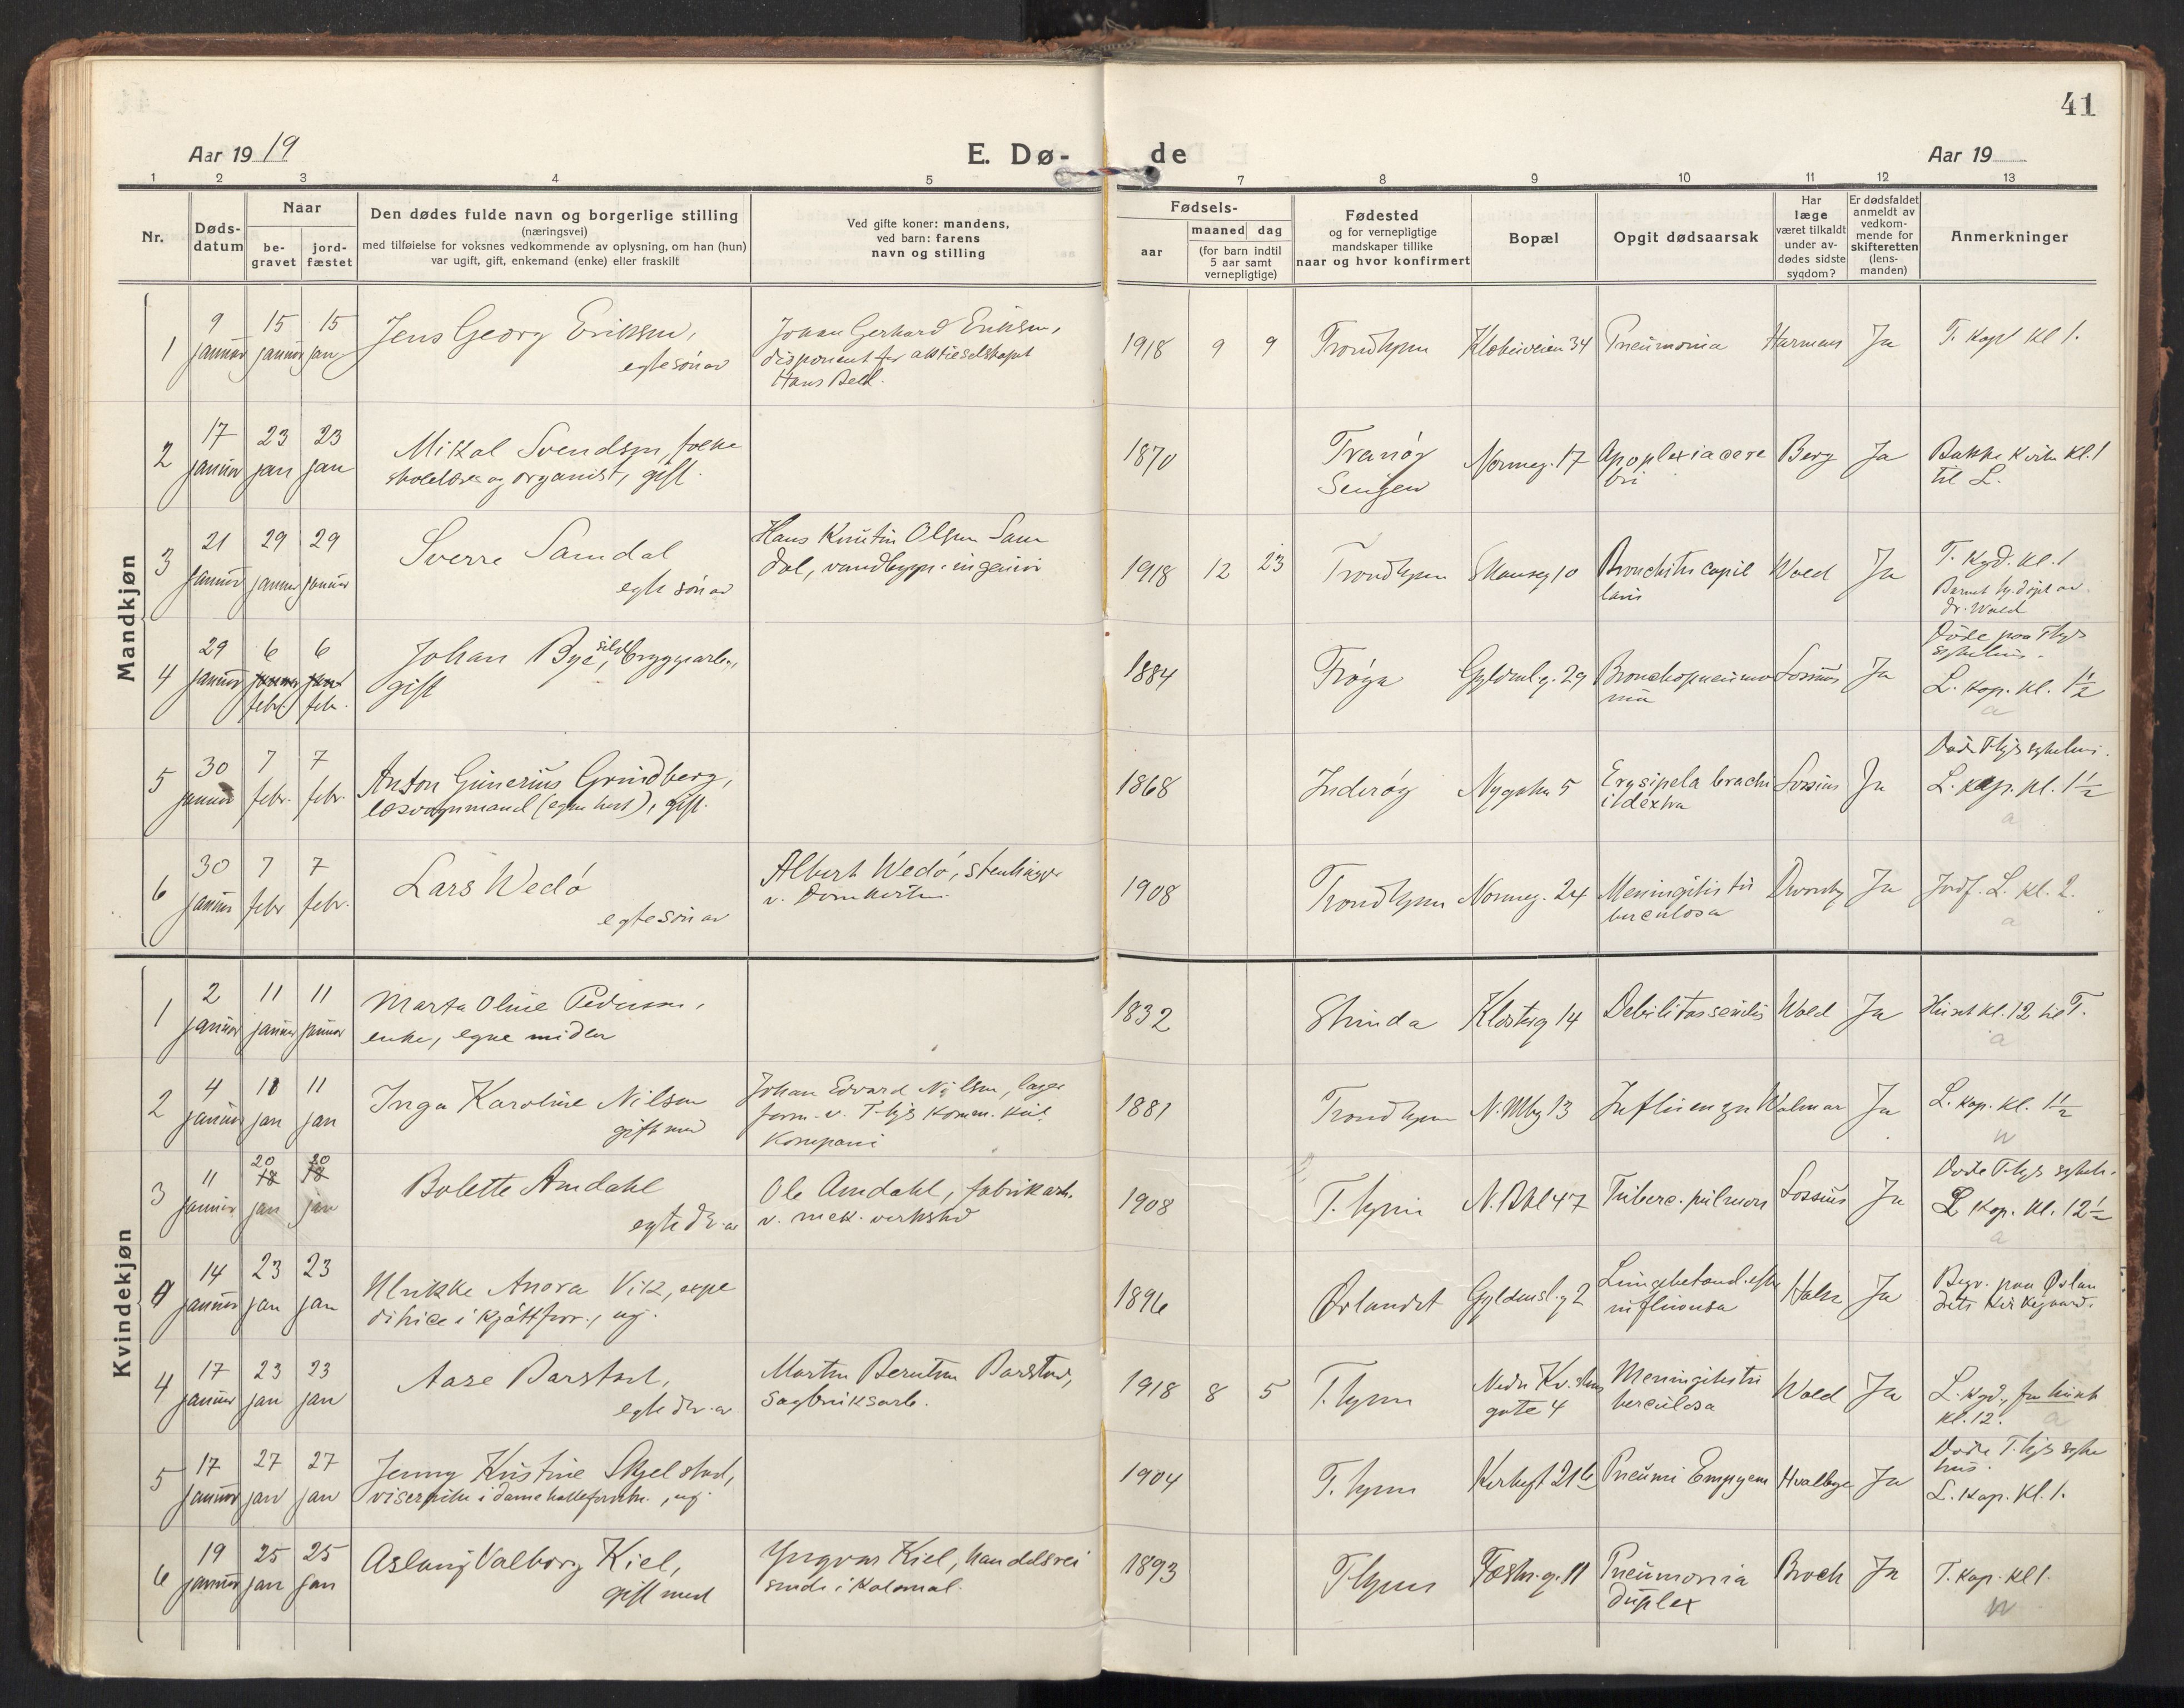 41
Aar 1919
E. Dø-
de
Aar 19
1 2 3 4 5 7 8 9 10 11 12 13
Nr.
Døds-
datum
Naar
be-
gravet
jord-
fæstet
Den dødes fulde navn og borgerlige stilling
(næringsvei)
med tilføielse for voksnes vedkommende av oplysning, om han (hun)
var ugift, gift, enkemand (enke) eller fraskilt
Ved gifte koner: mandens,
ved barn: farens
navn og stilling
Fødsels-
aar
maaned dag
(for barn indtil
5 aar samt
vernepligtige)
Fødested
og for vernepligtige
mandskaper tillike
naar og hvor konfirmert
Bopæl
Opgit dødsaarsak
Har
læge
været tilkaldt
under av-
dødes sidste
sygdom?
Er dødsfaldet
anmeldt av
vedkom-
mende for
skifteretten
(lens-
manden)
Anmerkninger
Mandkjøn
1
9 januar
15 januar
15 jan
Jens Georg Eriksen,
egte søn av
Johan Gerhard Eriksen,
disponent for aktieselskapet
Hans Bell.
1918 9 9
Trondhjem
Klæbuveien 34
Pneumonia
Ja
T. kapl kl 1.
2
17 januar
23 jan
23 jan
Mikal Svendsen, folke
skolelærer og organist, gift.
1870
Tranøy
Senjen
Normeg. 17
Apoplexia cere
bri
Berg
Ja
Bakke kirke kl. 1
til L.
3
21 januar
29 januar
29 januar
Sverre Samdal
egte søn av
Hans Kristin Olsen Sam
dal, vandbygn. ingeniør
1918 12 23
Trondhjem
Skanseg 10
Bronchitis capil
laris
Wold
Ja
T. kgd. kl. 1
Barnet hj. døpt av
dr. Wold
4
29 januar
6 januar febr
6 jan febr.
Johan Bye, sildbryggearb.,
gift
1884
Frøya
Gyldenl.g. 29
Bronchopneumo
nia
Lossius
Ja
Døde paa T.hjs
sykehus.
L. kap. kl. 1 1/2
a
5
30 januar
7 febr.
7 febr.
Anton Gunerius Grindberg,
løsvognmand (egen hest), gift.
1868
Inderøy
Nygaten 5
Erysipela brachi
i dextra
Lossius
Ja
Døde T.hjs sykehus.
L. kap. kl. 1 1/2
a
6
30 januar
7 febr
7 febr.
Lars Wedø
egte søn av
Albert Wedø, stenhugger
v. Domkirken
1908
Trondhjem
Normeg. 24
Meningitis tu
berculosa
Ja
Jordf. L. kl. 2.
a
Kvindekjøn
1
2 januar
11 januar
11 januar
Marta Oline Pedersen,
enke, egne midler
1832
Strinda
Klosterg 14
Debilitas senilis
Wold
Ja
Huset kl. 12 til T.
a
2
4 januar
11 jan
11 jan
Inga Karoline Nilsen
gift med
Johan Edvard Nilsen, lager
form. v. T.hjs Komm. kul
kompani
1881
Trondhjem
N. Mbg 13
Influenza
Ja
L. kap. kl. 1 1/2
N
3
11 januar
20 18 jan
20 18 jan
Bolette Amdahl
egte dtr. av
Ole Amdahl, fabrikarb.
v. mek. verksted
1908
T.hjem
N. Bkl 47
Tuberc. pulmon
Lossius
Ja
Døde T.hjs sykeh.
L kap. kl. 12 1/2
a
14 januar
23 jan
23 jan
Ulrikke Anora Vik, expe
ditrice i kjøttforr., ug.
1896
Ørlandet
Gyldenl.g 2
Lungebetænd. efter
influensa
Ja
Begr. paa Ørlan
dets kirkegaard.
4
17 januar
23 jan
23 jan
Aase Barstad,
egte dtr. av
Martin Berntsen Barstad,
sagbruksarb.
1918 8 5
T.hjem
Nedre Kv. skans
gate 4
Meningitis tu
berculosa
Wold
Ja
L. kgd., fra huset
kl. 12.
a
5
17 januar
27 jan
27 jan
Jenny Kristine Skjelstad,
viserpike i damehatteforretn., ug.
1904
T.hjem
Kirkegt 21 b
Pneumi Empyem
Hvalbye
Ja
Døde T.hjs syke
hus.
L. kap. kl. 1.
6
19 januar
25 jan
25 jan
Aslaug Valborg Kiel,
gift med
Yngvar Kiel, handelsrei
sende i kolonial.
1893
T.hjem
Pneumonia
duplex
Broch
Ja
T. kap. kl 1.
N